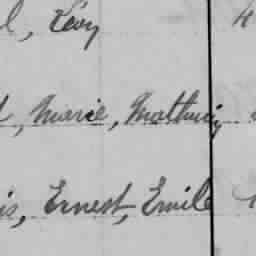 l, Léon
l, Marie, Mathurin
is, Ernest, Emile